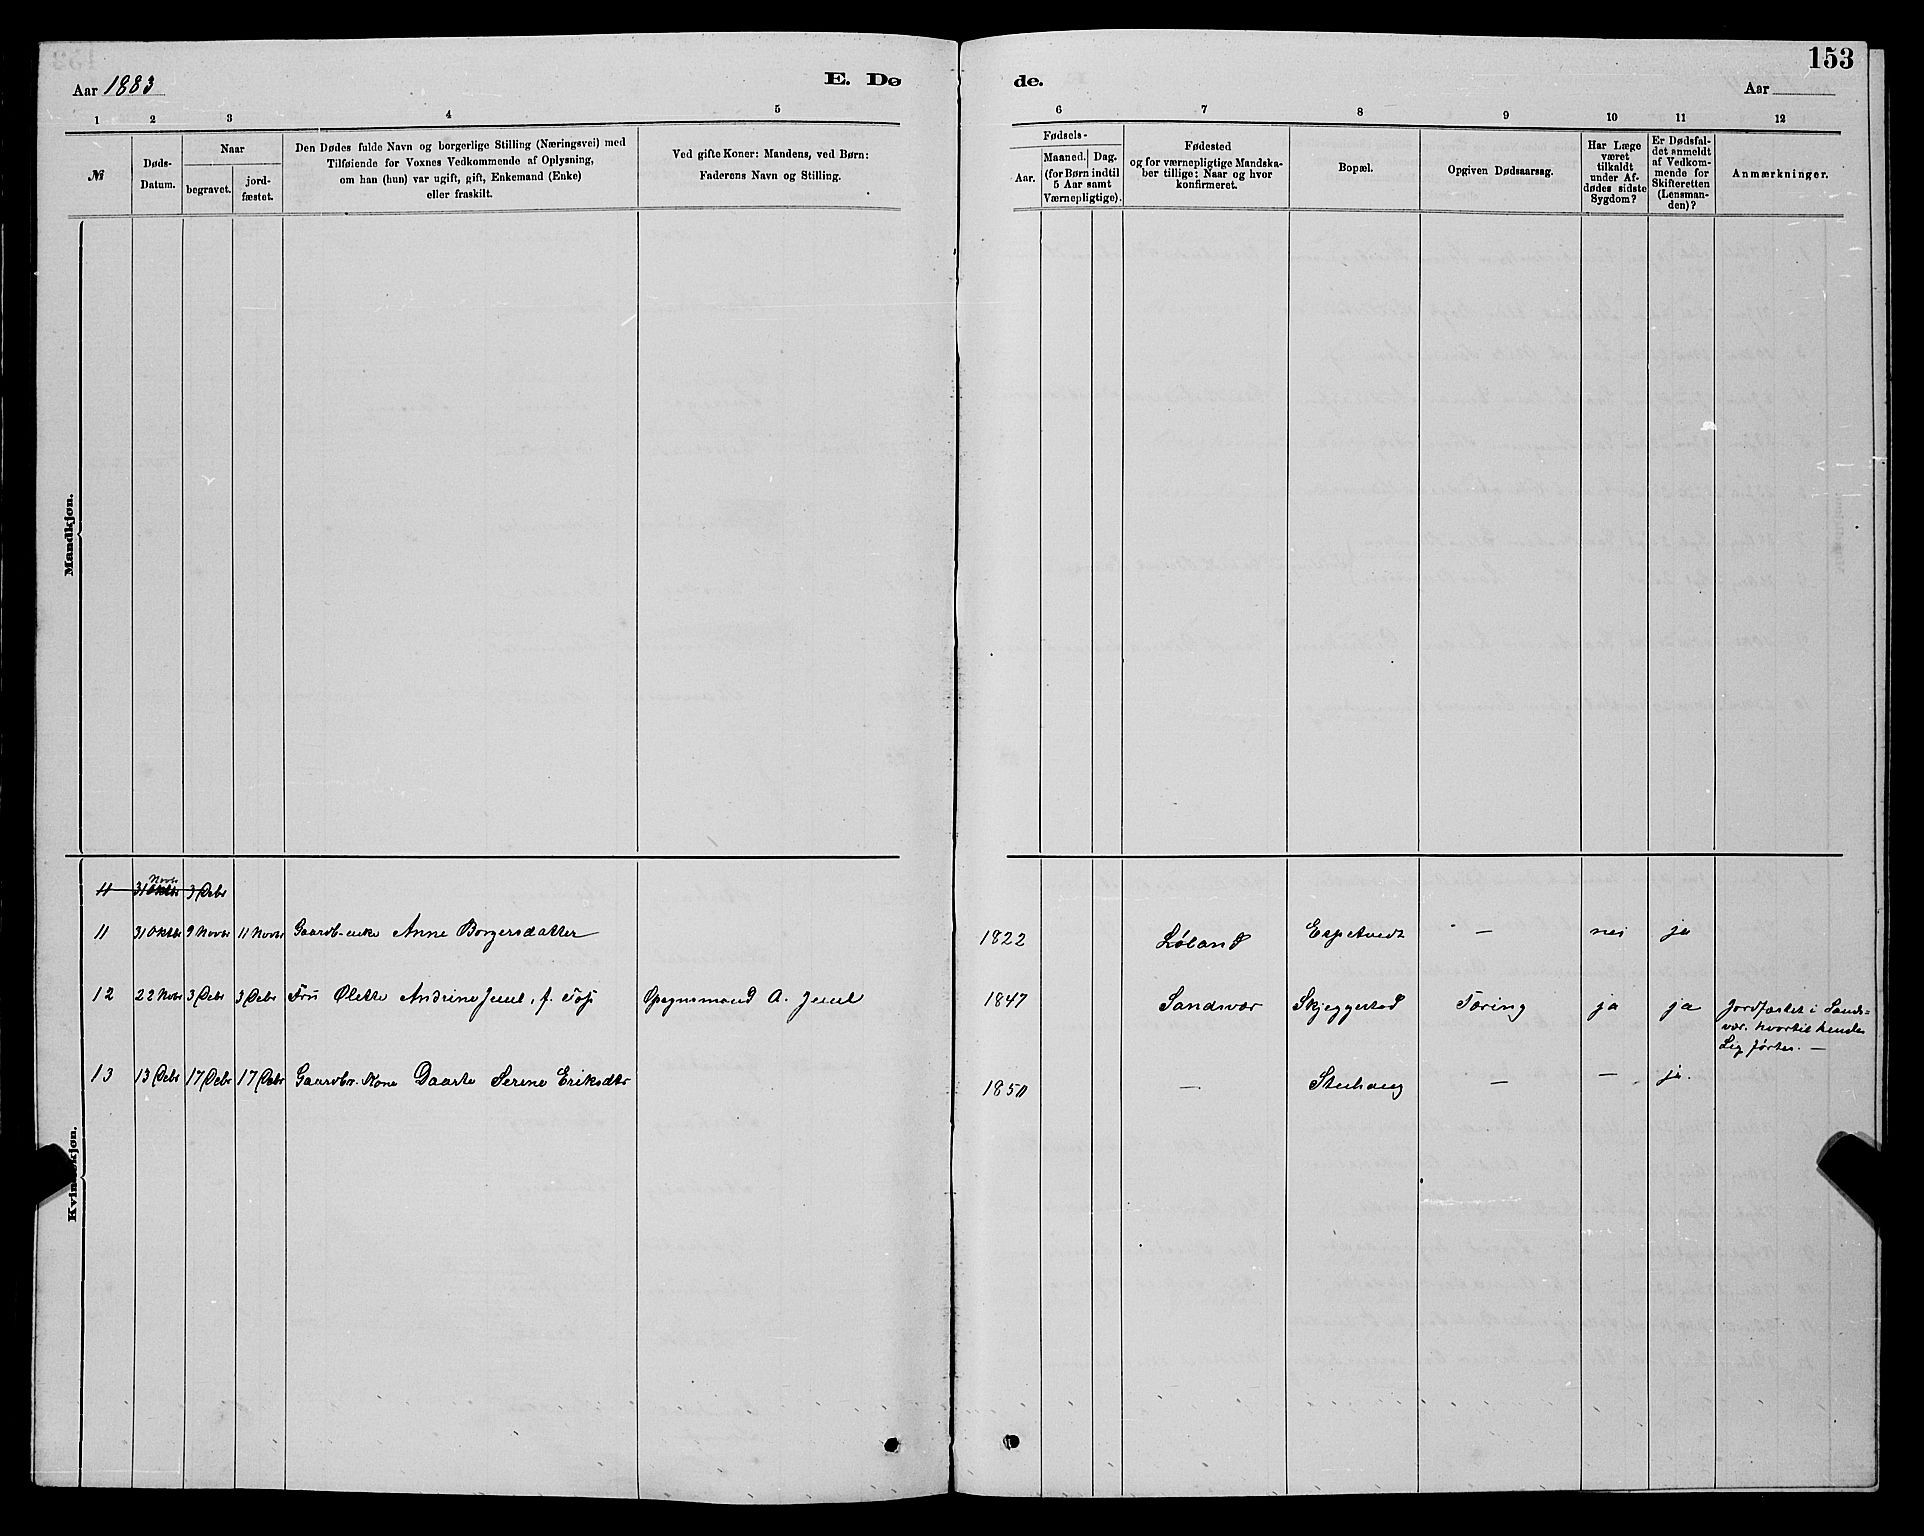 153
Aar 1883
E. Dø
de.
Aar
1 2 3 4 5 6 7 8 9 10 11 12
№
Døds-
Datum.
Naar
begravet.
jord-
fæstet.
Den Dødes fulde Navn og borgerlige Stilling (Næringsvei) med
Tilføiende for Voxnes Vedkommende af Oplysning,
om han (hun) var ugift, gift, Enkemand (Enke)
eller fraskilt.
Ved gifte Koner: Mandens, ved Børn:
Faderens Navn og Stilling.
Fødsels-
Aar.
Maaned. Dag.
(for Børn indtil
5 Aar samt
Værnepligtige).
Fødested
og for værnepligtige Mandska-
ber tillige: Naar og hvor
konfirmeret.
Bopæl.
Opgiven Dødsaarsag.
Har Læge
været
tilkaldt
under Af-
dødes sidste
Sygdom?
Er Dødsfal-
det anmeldt
af Vedkom-
mende for
Skifteretten
(Lensman-
den)?
Anmærkninger.
Mandkjøn.
Kvindekjøn.
Novbr
11 31 Oktbr 3 Debr
11 31 Oktbr 9 Novbr 11 Novbr Gaardb-enke Anne Borgersdatter 1822 Løland Espetvedt — nei ja
12 22 Novbr 3 Debr 3 Debr Fru Olette Andrine Juul, f. Opsynsmand A. Juul 1847 Sandsvær Skjeggestad Tæring ja ja Jordfæstet i Sands-
vær. hvortil hendes
Lig førtes. —
13 13 Debr 17 Debr 17 Debr Gaardbr. Kone Daarte Serine Eriksdtr 1850 — Stuhaug — — ja.